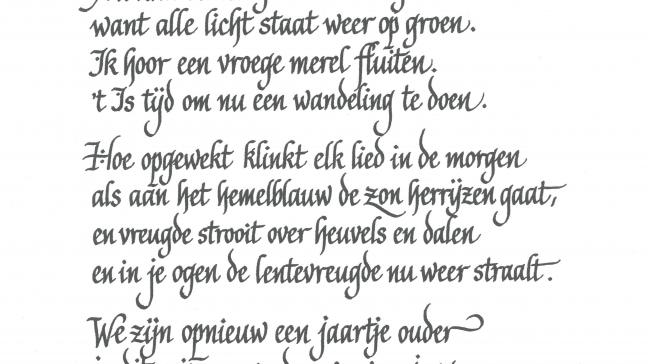 want alle licht staat weer op groen.
Ik hoor een vroege merel fluiten.
't Is tijd om nu een wandeling te doen.
Hoe opgewekt klinkt elk lied in de morgen
als aan het hemelblauw de zon herrijzen gaat,
en vreugde strooit over heuvels en dalen
en in je ogen de lentevreugde nu weer straalt.
We zijn opnieuw een jaartje ouder